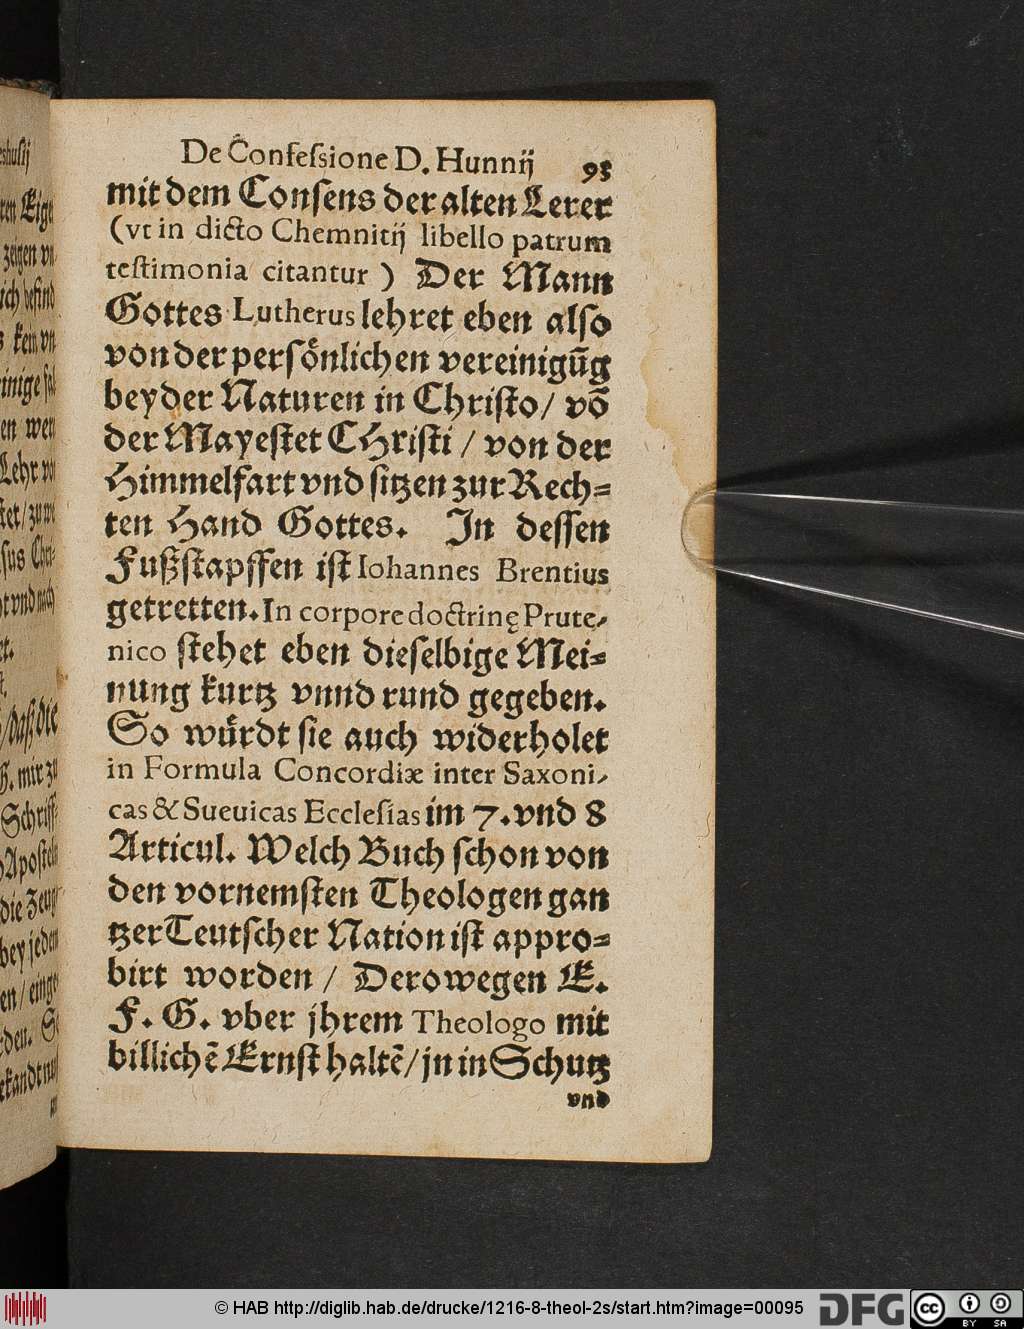 De Confeſsione D. Hunnij 95
mit dem Conſens der alten Lerer
(vt in dicto Chemnitij libello patrum
teſtimonia citantur ) Der Mann
Gottes Lutherus lehret eben alſo
von der perſoͤnlichen vereinigūg
beyder Naturen in Chriſto/ võ
der Mayeſtet CHriſti / von der
Himmelfart vnd ſitzen zur Rech⸗
ten Hand Gottes. In deſſen
Fußſtapffen iſt Iohannes Brentius
getretten. In corpore doctrinę Prute⸗
nico ſtehet eben dieſelbige Mei⸗
nung kurtz vnnd rund gegeben.
So wuͤrdt ſie auch widerholet
in Formula Concordiæ inter Saxoni⸗
cas & Sueuicas Eccleſias im 7. vnd 8
Articul. Welch Buch ſchon von
den vornemſten Theologen gan
tzer Teutſcher Nation iſt appro⸗
birt worden / Derowegen E.
F. G. vber jhrem Theologo mit
billichē Ernſt haltē/ jn in Schutz
vnd
© HAB http://diglib.hab.de/drucke/1216-8-theol-2s/start.htm?image=00095
DFG cc BY SA